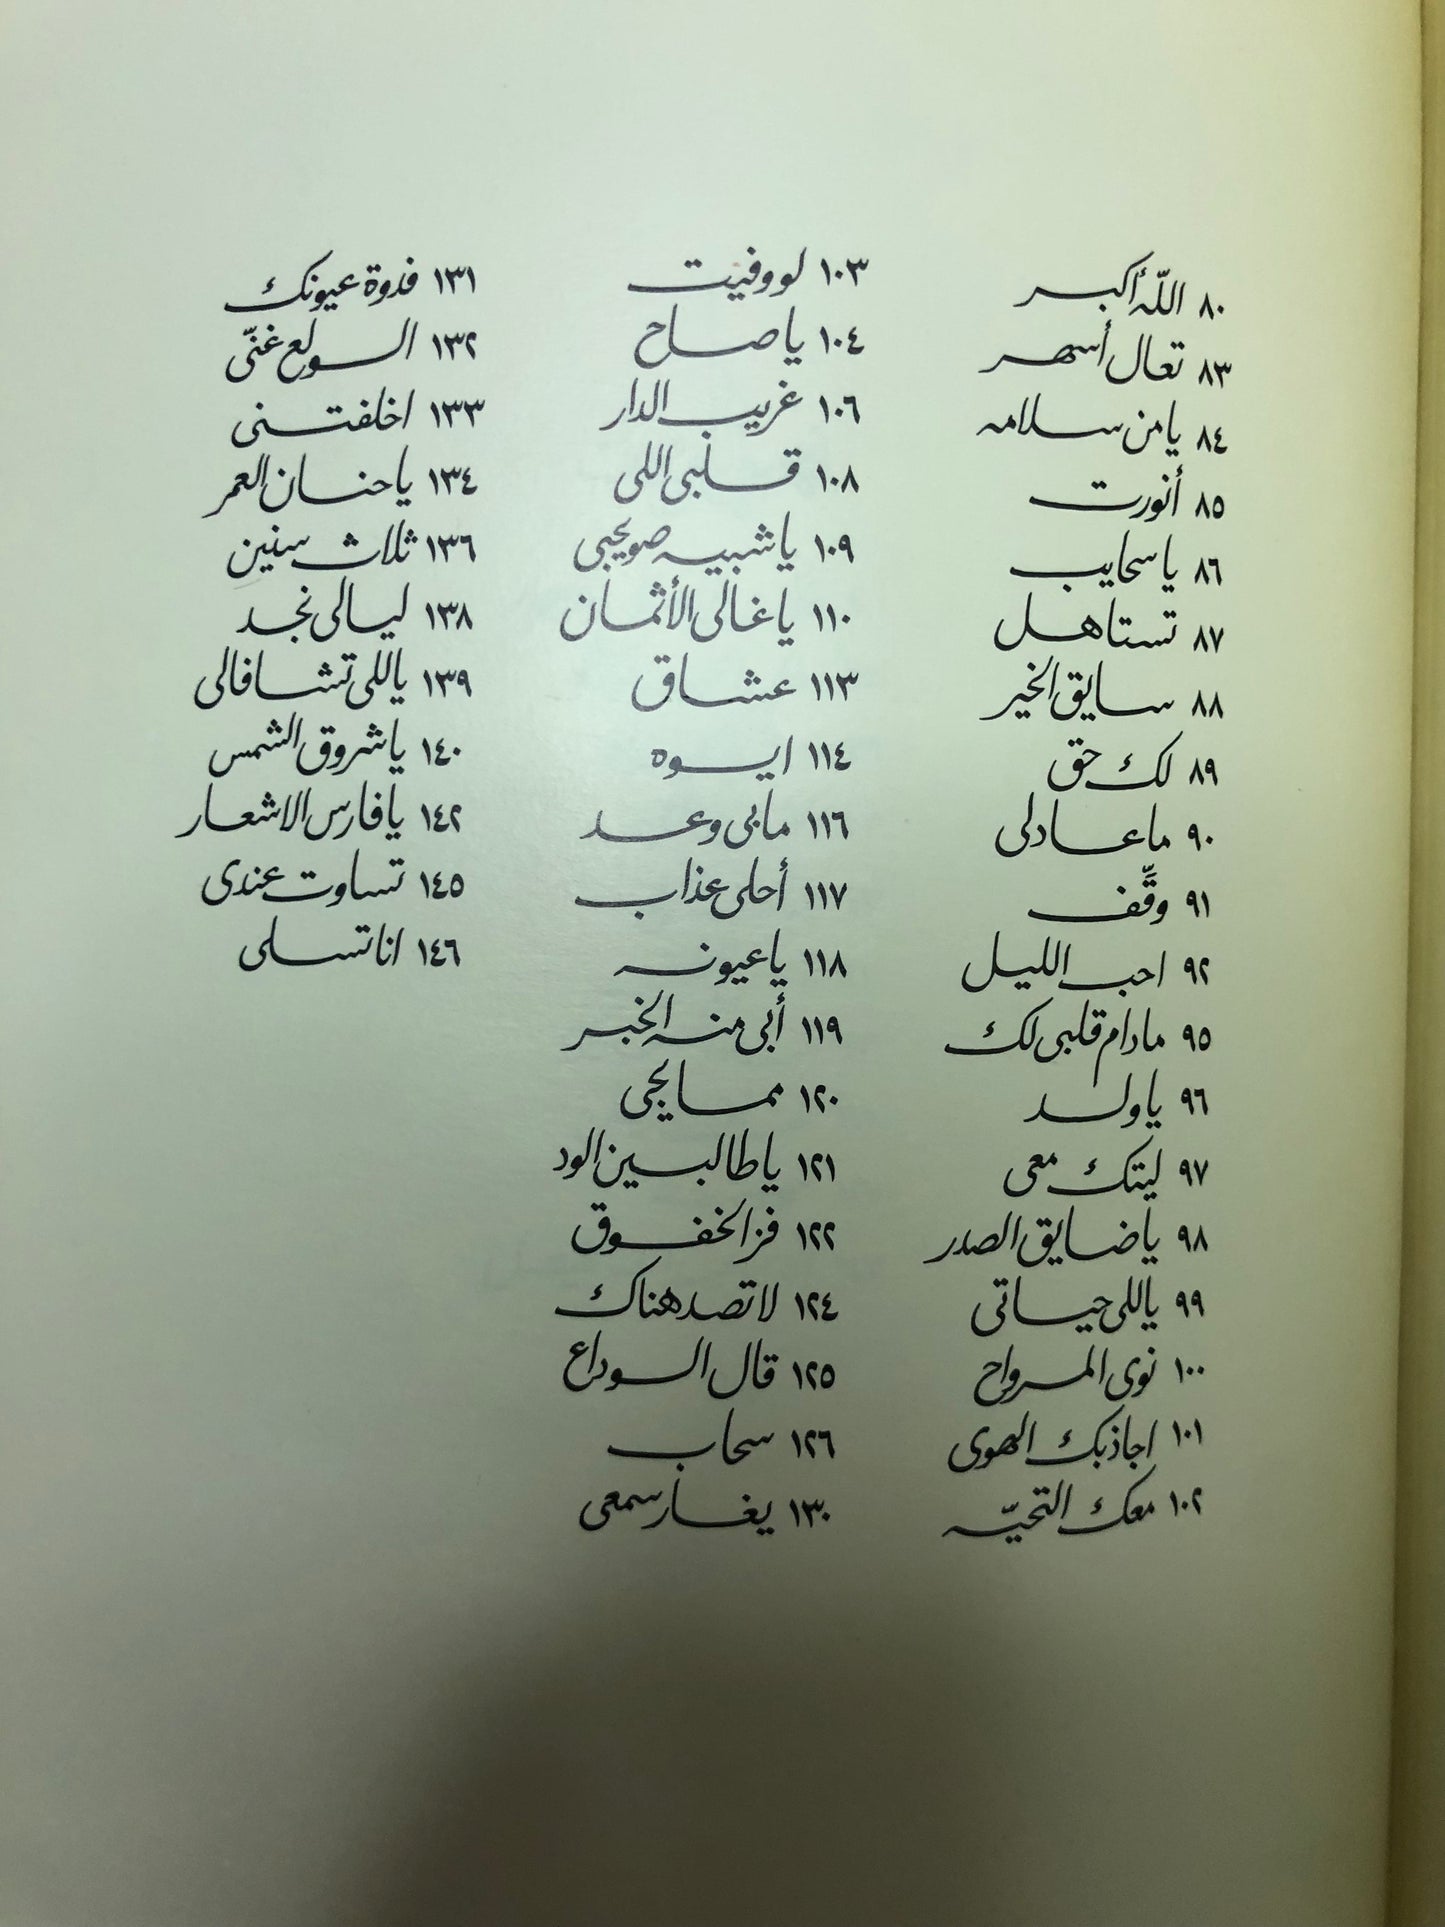 ٨٠ اللّه أكبر
٨٣ تعال أسهر
٨٤ يا من سلامه
٨٥ أنورت
٨٦ يا سحايب
٨٧ تستاهل
٨٨ سايق الخير
٨٩ لك حق
٩٠ ما عاد لى
٩١ وقِّف
٩٢ احب الليل
٩٥ مادام قلبى لك
٩٦ يا ولد
٩٧ ليتك معى
٩٨ يا ضايق الصدر
٩٩ ياللى حياتى
١٠٠ نوى المرواح
١٠١ اجاذبك الهوى
١٠٢ معك التحيّه
١٠٣ لو وفيت
١٠٤ يا صاح
١٠٦ غريب الدار
١٠٨ قلبى اللى
١٠٩ يا شبيه صويحبى
١١٠ يا غالى الأثمان
١١٣ عشاق
١١٤ ايوه
١١٦ مابى وعد
١١٧ أحلى عذاب
١١٨ يا عيونه
١١٩ أبى منه الخبر
١٢٠ مما يجى
١٢١ يا طالبين الود
١٢٢ فز الخفوق
١٢٤ لا تصد هناك
١٢٥ قال الوداع
١٢٦ سحاب
١٣٠ يغار سمعى
١٣١ فدوة عيونك
١٣٢ الولع غنّى
١٣٣ اخلفتنى
١٣٤ يا حنان العمر
١٣٦ ثلاث سنين
١٣٨ ليالى نجد
١٣٩ ياللى تشافالى
١٤٠ يا شروق الشمس
١٤٢ يا فارس الاشعار
١٤٥ تساوت عندى
١٤٦ انا تسلى